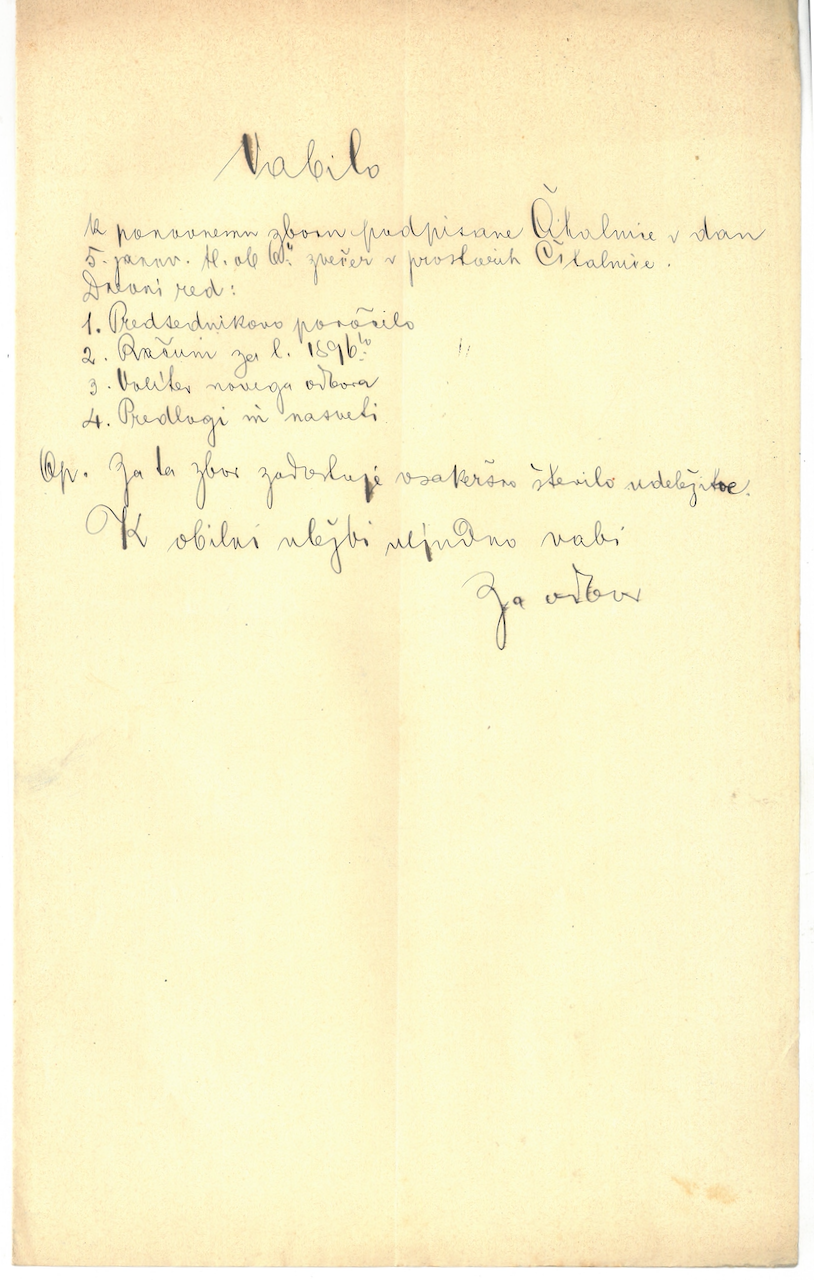 Vabilo
k ponovnemu zboru podpisane Čitalnice v dan
5. januv. t. l. ob 6h zvečer v prostorih Čitalnice.
Dnevni red:
1. Predsednikovo poročilo
2. Računi za l. 1896to
3. Volitev novega odbora
4. Predlogi in nasveti
Op. Za ta zbor zadostuje vsakeršno število udeležitve.
K obilni vležbi uljudno vabi
Za odbor